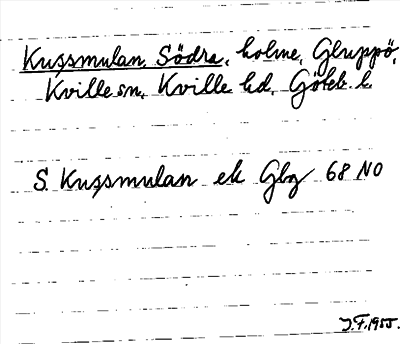 Kuşsmulan, Södra, holme, Gluppö,
Kville sn, Kville hd, Göteb. l.
S. Kuşsmulan ek Gbg 68 NO
J.F. 1955.